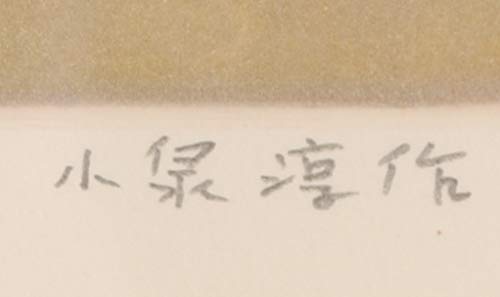 小泉淳作